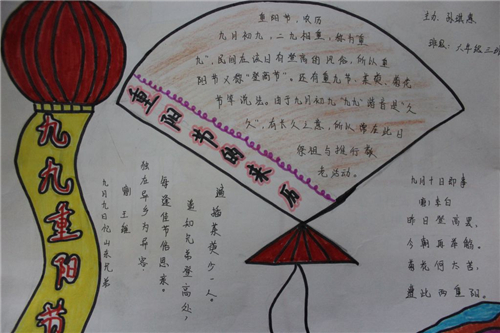 九九重阳节
重阳节的来历
重阳节,农历
九月初九,二九相重,称为"重
九",民间在该日有登高的风俗,所以重
阳节又称"登高节"。还有重九节、茱萸、菊花
节等说法。由于九月初九"九九"谐音是"久
久",有长久之意,所以常在此日
祭祖与推行敬
老活动。
主办:
班级:
九月九日忆山东兄弟
唐 王维
独在异乡为异客
每逢佳节倍思亲。
遥知兄弟登高处,
遍插茱萸少一人。
九月十日即事
唐 李白
昨日登高罢,
今朝再举觞。
菊花何太苦,
遭此两重阳。